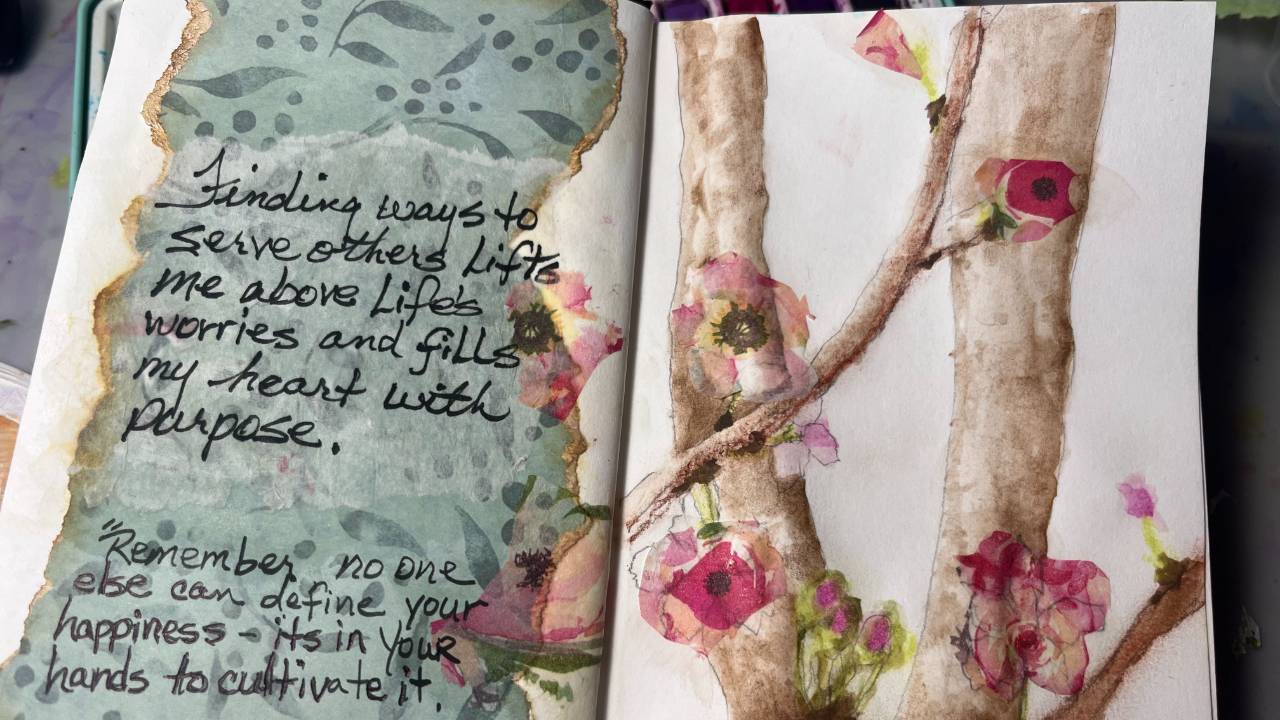 Finding ways to
serve others Lifts
me above Life's
worries and fills
my heart with
purpose.
"Remember, no one
else can define your
happiness - its in your
hands to cultivate it.